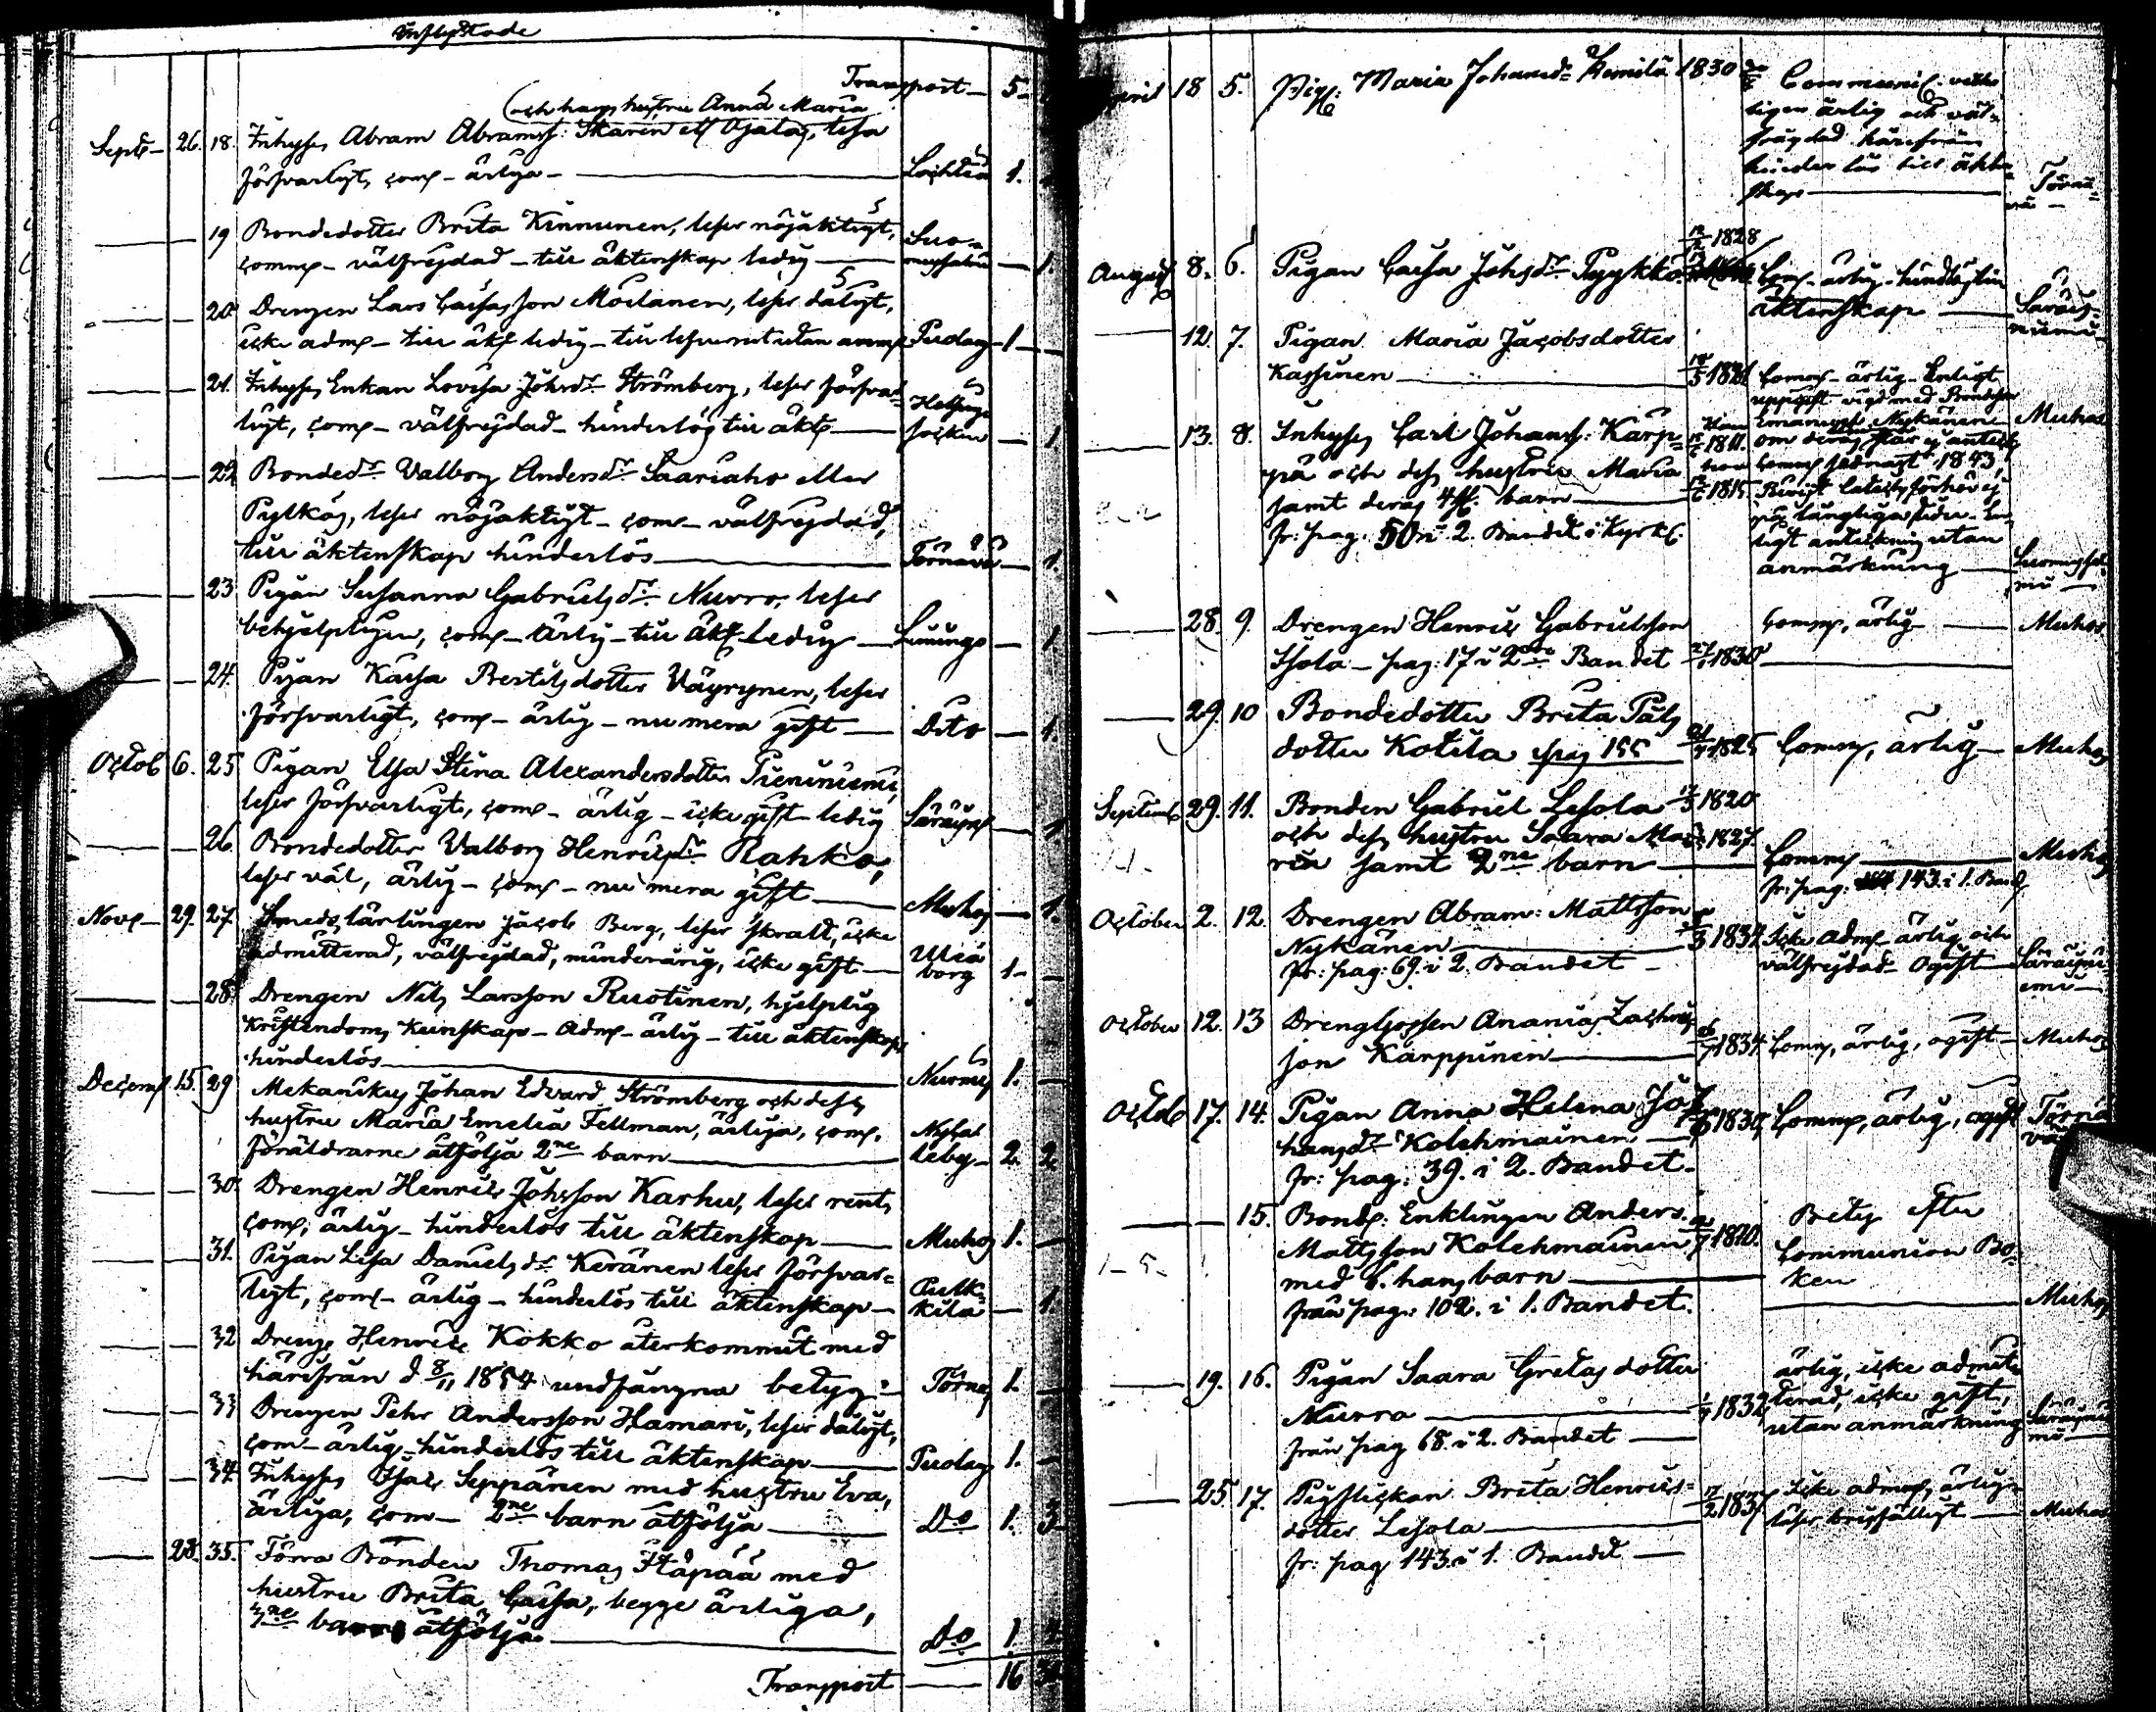 Inflyttade
Transport 5
och hans hustru Anna Maria
Septr 26. 18. Inhyses Abram Abramss: Skarin ell Ojala, läsa
försvarligt, comm - ärliga - Lochteå 1.
19 Bondedotter Brita Kinnunen, läser nöjaktigt, Suo-
comm - välfrejdad - till äktenskap ledig - mussalmi 1.
20 Drengen Lars Caisas son Moilanen, läser dåligt,
icke adm - till äkt ledig - Pudas 1
21. Inhyses Enkan Lovisa Johsdr Strömberg, läser försvar-
ligt, com - välfrejdad - hinderlös till äkt - Helsinge socken 1
22 Bondedr Valborg Andersdr Saariaho eller
Pylkäs, läser nöjaktigt - com - välfrejdad,
till äktenskap hinderlös Törnävä 1.
23 Pigan Susanna Gabrielsdr Nurro, läser
behjelpligen, com - ärlig - till äkt. ledig - Limingo 1
24. Pigan Kaisa Bertilsdotter Väyrynen, läser
försvarligt, com - ärlig - nu mera gift - Dito 1.
Octob 6. 25 Pigan Elsa Stina Alexandersdotter Pieniniemi,
läser försvarligt, com - ärlig - icke gift - ledig Säräisn 1
26. Bondedotter Valborg Henricsdr Rahko,
läser väl, ärlig - com - nu mera gift Muhos 1.
Nove 29. 27. Smedslärlingen Jacob Berg, läser skralt, icke
admitterad, välfrejdad, minderårig, icke gift - Uleå
borg 1
28 Drengen Nils Larsson Ruotinen, hjelplig
kristendoms kunskap - adm - ärlig - till äktenskap
hinderlös Nurmes 1.
Decem 15. 29 Mekanikus Johan Edvard Strömberg och dess
hustru Maria Emelia Fellman, ärliga, com. Nykar
föräldrarne åtfölja 2ne barn leby 2 2
30. Drengen Henric Johsson Karhu, läser rent,
com, ärlig - hinderlös till äktenskap Muhos 1.
31. Pigan Lisa Danielsdr Keränen läser försvar=
ligt, com - ärlig - hinderlös till äktenskap - Pulk
kila 1.
32 Dreng Henric Kokko återkommit med
härifrån d 8/11 1854 undfångna betyg - Törnä 1.
33 Drengen Pehr Andersson Hamari, läser dåligt,
com - ärlig - hinderlös till äktenskap Pudas 1.
34. Inhyses Isac Seppänen med hustru Eva,
ärliga, com - 2ne barn åtfölja Do 1. 3
23. 35. Förra Bonden Thomas Itäpää med
hustru Brita Caisa, begge ärliga,
barn åtfölja Do 1
Transport 16
April 18 5. Pig: Maria Johansdr Komila 1830 Communic.
ärlig och väl-
frejdad härifrån
hinderlös till äkten-
skap Törnä-
vä
August 8. 6. Pigan Caisa Johsdr Pyykkö 1828 Com - ärlig - hinderlös till
äktenskap Säräis-
niemi
12. 7. Pigan Maria Jacobsdotter
Kassinen 1821 Comm - ärlig - Enligt
uppgift vigd med Bondeson
Nykänen Muhos
13. 8. Inhyses Carl Johanss: Karp= 1811.
pä och dess hustru Maria
samt deras 4 barn 1815
fr: pag: 50 i 2. Bandet i Kyrk. utan
anmärkning Suomussal-
mi
28. 9. Drengen Henric Gabrielsson Comm, ärlig Muhos
Isola - pag: 17 i 2dra Bandet 1830
29. 10 Bondedotter Brita Påls
dotter Kotila pag 155 1825 Comm, ärlig - Muhos
Septemb 29. 11. Bonden Gabriel Lesola 1820
och dess hustru Saara Ma 1827.
ria samt 2ne barn Comm Muhos
fr: pag: 143. i 1. Band
October 2. 12. Drengen Abram: Mattsson
Nykänen 1834 Icke adm - ärlig och
fr: pag: 69. i 2. Bandet välfrejdad - ogift Säräisni
emi
October 12. 13 Drenggossen Ananias Zachris
son Karppinen 1834 Comm, ärlig, ogift - Muhos
Octob 17. 14. Pigan Anna Helena Jo
hansdr Kolehmainen 1830 Comm, ärlig, ogift Törnä
vä
fr: pag: 39. i 2. Bandet.
15. Bond: Enklingen Anders
Mattsson Kolehmainen 1810. Betyg efter
Communion Bo-
ken
med 6. hans barn Muhos
från pag: 102. i 1. Bandet.
19. 16. Pigan Saara Gretas dotter
Nurro 1832 ärlig, icke admit-
terad, icke gift,
utan anmärkning Säräisni
mi
från pag 68. i 2. Bandet
25. 17. Pigflickan Brita Henrics-
dotter Lesola Icke adm, ärlig
läser bristfälligt Muhos
fr: pag 143 i 1. Bandet